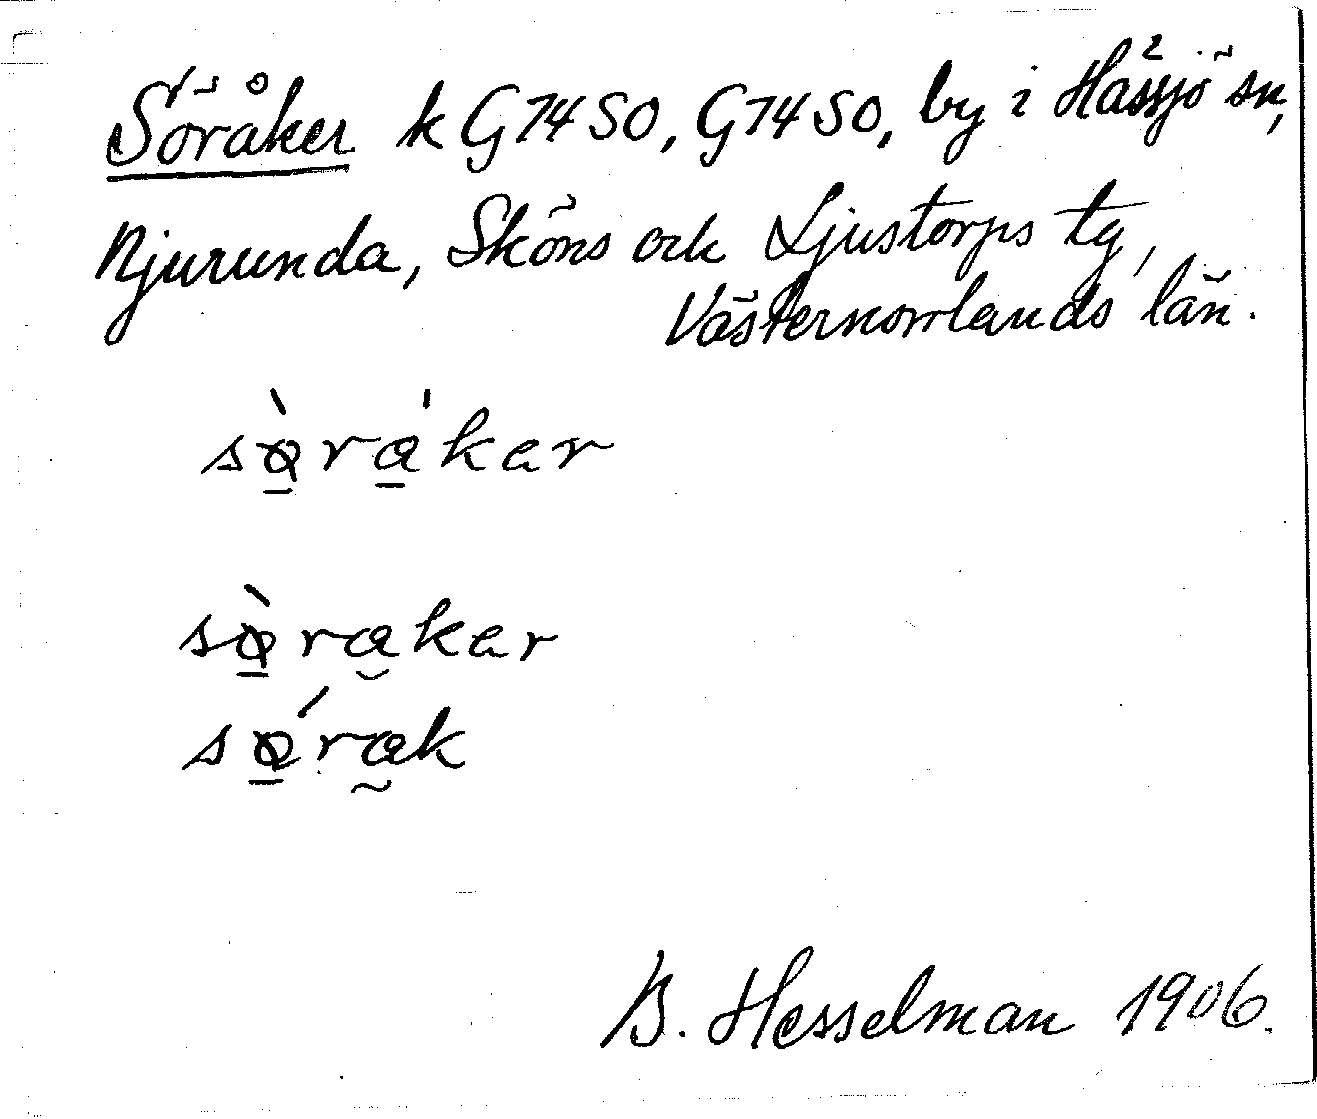 Söråker k G 74 SO, G 74 SO, by i Hässjö sn,
Njurunda, Sköns och Ljustorps tg,
Västernorrlands län.
sø̠̀ra̠̍kar
sø̠̀ra̮kar
sǿ̠ra̰k
B. Hesselman 1906.